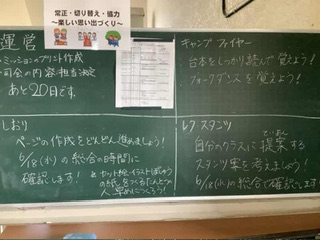 堂正・切り替え・協力
～楽しい思い出づくり～
運営
・ミッションのプリント作成
・司会の内容・担当決定
あと20日です。
キャンプファイヤー
台本をしっかり読んで覚えよう!
フォークダンスを覚えよう!
しおり
ページの作成をどんどん進めましょう!
6/18(水)の総合の時間に
確認します!
＆カット絵・イストぼしゅう
の紙をつくるたんとう
人、早めにつくろう!
レクスタンツ
自分のクラスに提案する
ていあん
スタンツ案を考えましょう!
6/18(水)の総合で確認します!